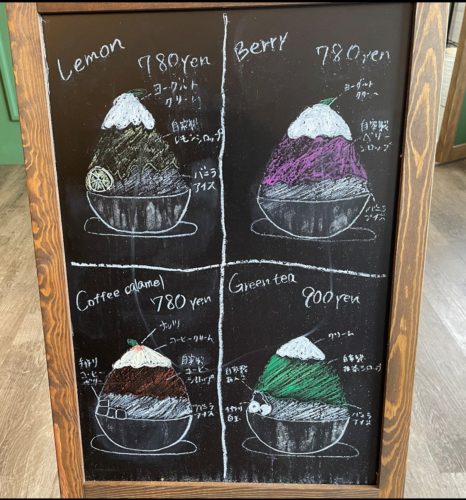 Lemon
780yen
ヨーグルト
クリーム
自家製
レモンシロップ
バニラ
アイス
Berry
780yen
ヨーグルト
クリーム
自家製
ベリー
シロップ
バニラ
アイス
Coffee calamel
780yen
ナッツ
コーヒークリーム
手作り
コーヒー
ゼリー
自家製
コーヒー
シロップ
バニラ
アイス
Green tea
900yen
クリーム
自家製
抹茶シロップ
自家製
あんこ
手作り
白玉
バニラ
アイス